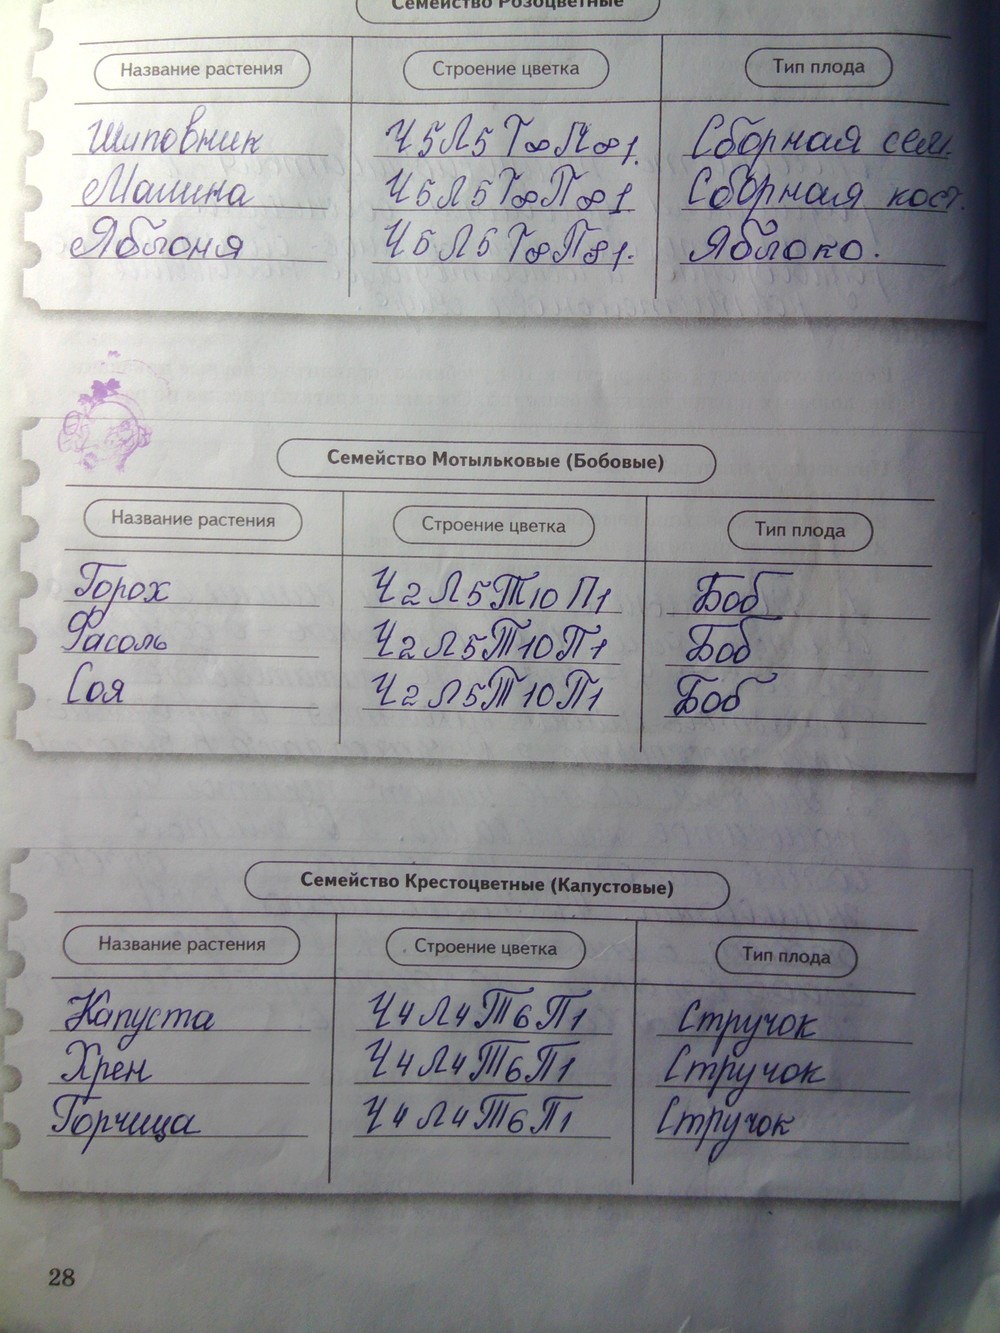 Семейство Розоцветные
Название растения Строение цветка Тип плода
Шиповник Ч5Л5Т∞П∞1. Сборная сем.
Малина Ч5Л5Т∞П∞1 Сборная кост.
Яблоня Ч5Л5Т∞П81. Яблоко.
Семейство Мотыльковые (Бобовые)
Название растения Строение цветка Тип плода
Горох Ч2Л5Т10П1 Боб
Фасоль Ч2Л5Т10П1 Боб
Соя Ч2Л5Т10П1 Боб
Семейство Крестоцветные (Капустовые)
Название растения Строение цветка Тип плода
Капуста Ч4Л4Т6П1 Стручок
Хрен Ч4Л4Т6П1 Стручок
Горчица Ч4Л4Т6П1 Стручок
28